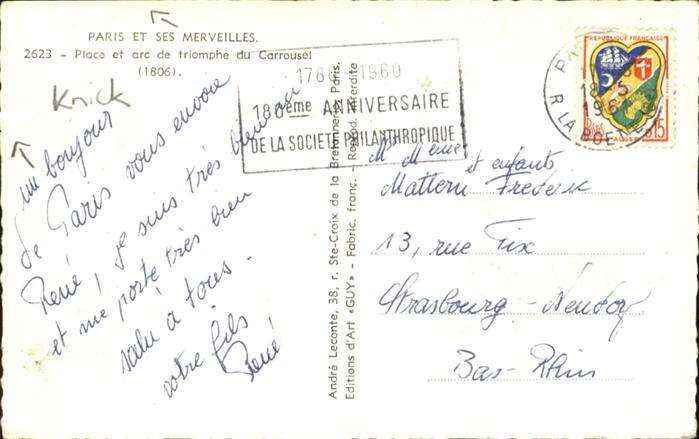 PARIS ET SES MERVEILLES.
2623 - Place et arc de triomphe du Carrousel
(1806).
Knick
un bonjour
de Paris vous envoie
René, je suis très bien ici
et me porte très bien
salu à tous.
votre fils
René
1780-1960
180ème ANNIVERSAIRE
DE LA SOCIETE PHILANTHROPIQUE
André Leconte, 38, r. Ste-Croix de la Bretonnerie, Paris.
Editions d'Art «GUY» - Fabric. franç. - Reprod. interdite
REPUBLIQUE FRANÇAISE
0,15
PA
18
5
R. LA BOETIE
M Meme et enfants
Mattern Frederic
13, rue Fix
Strasbourg - Neudorf
Bas-Rhin